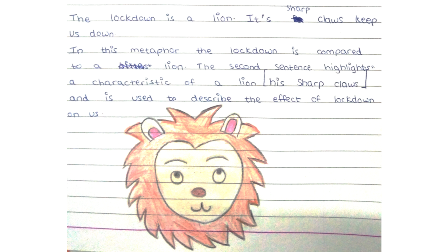 The lockdown is a lion. It's sharp claws keep
us down
In this metaphor the lockdown is compared
to a lion. The second sentence highlights
a characteristic of a lion [his sharp claws]
and is used to describe the effect of lockdown
on us